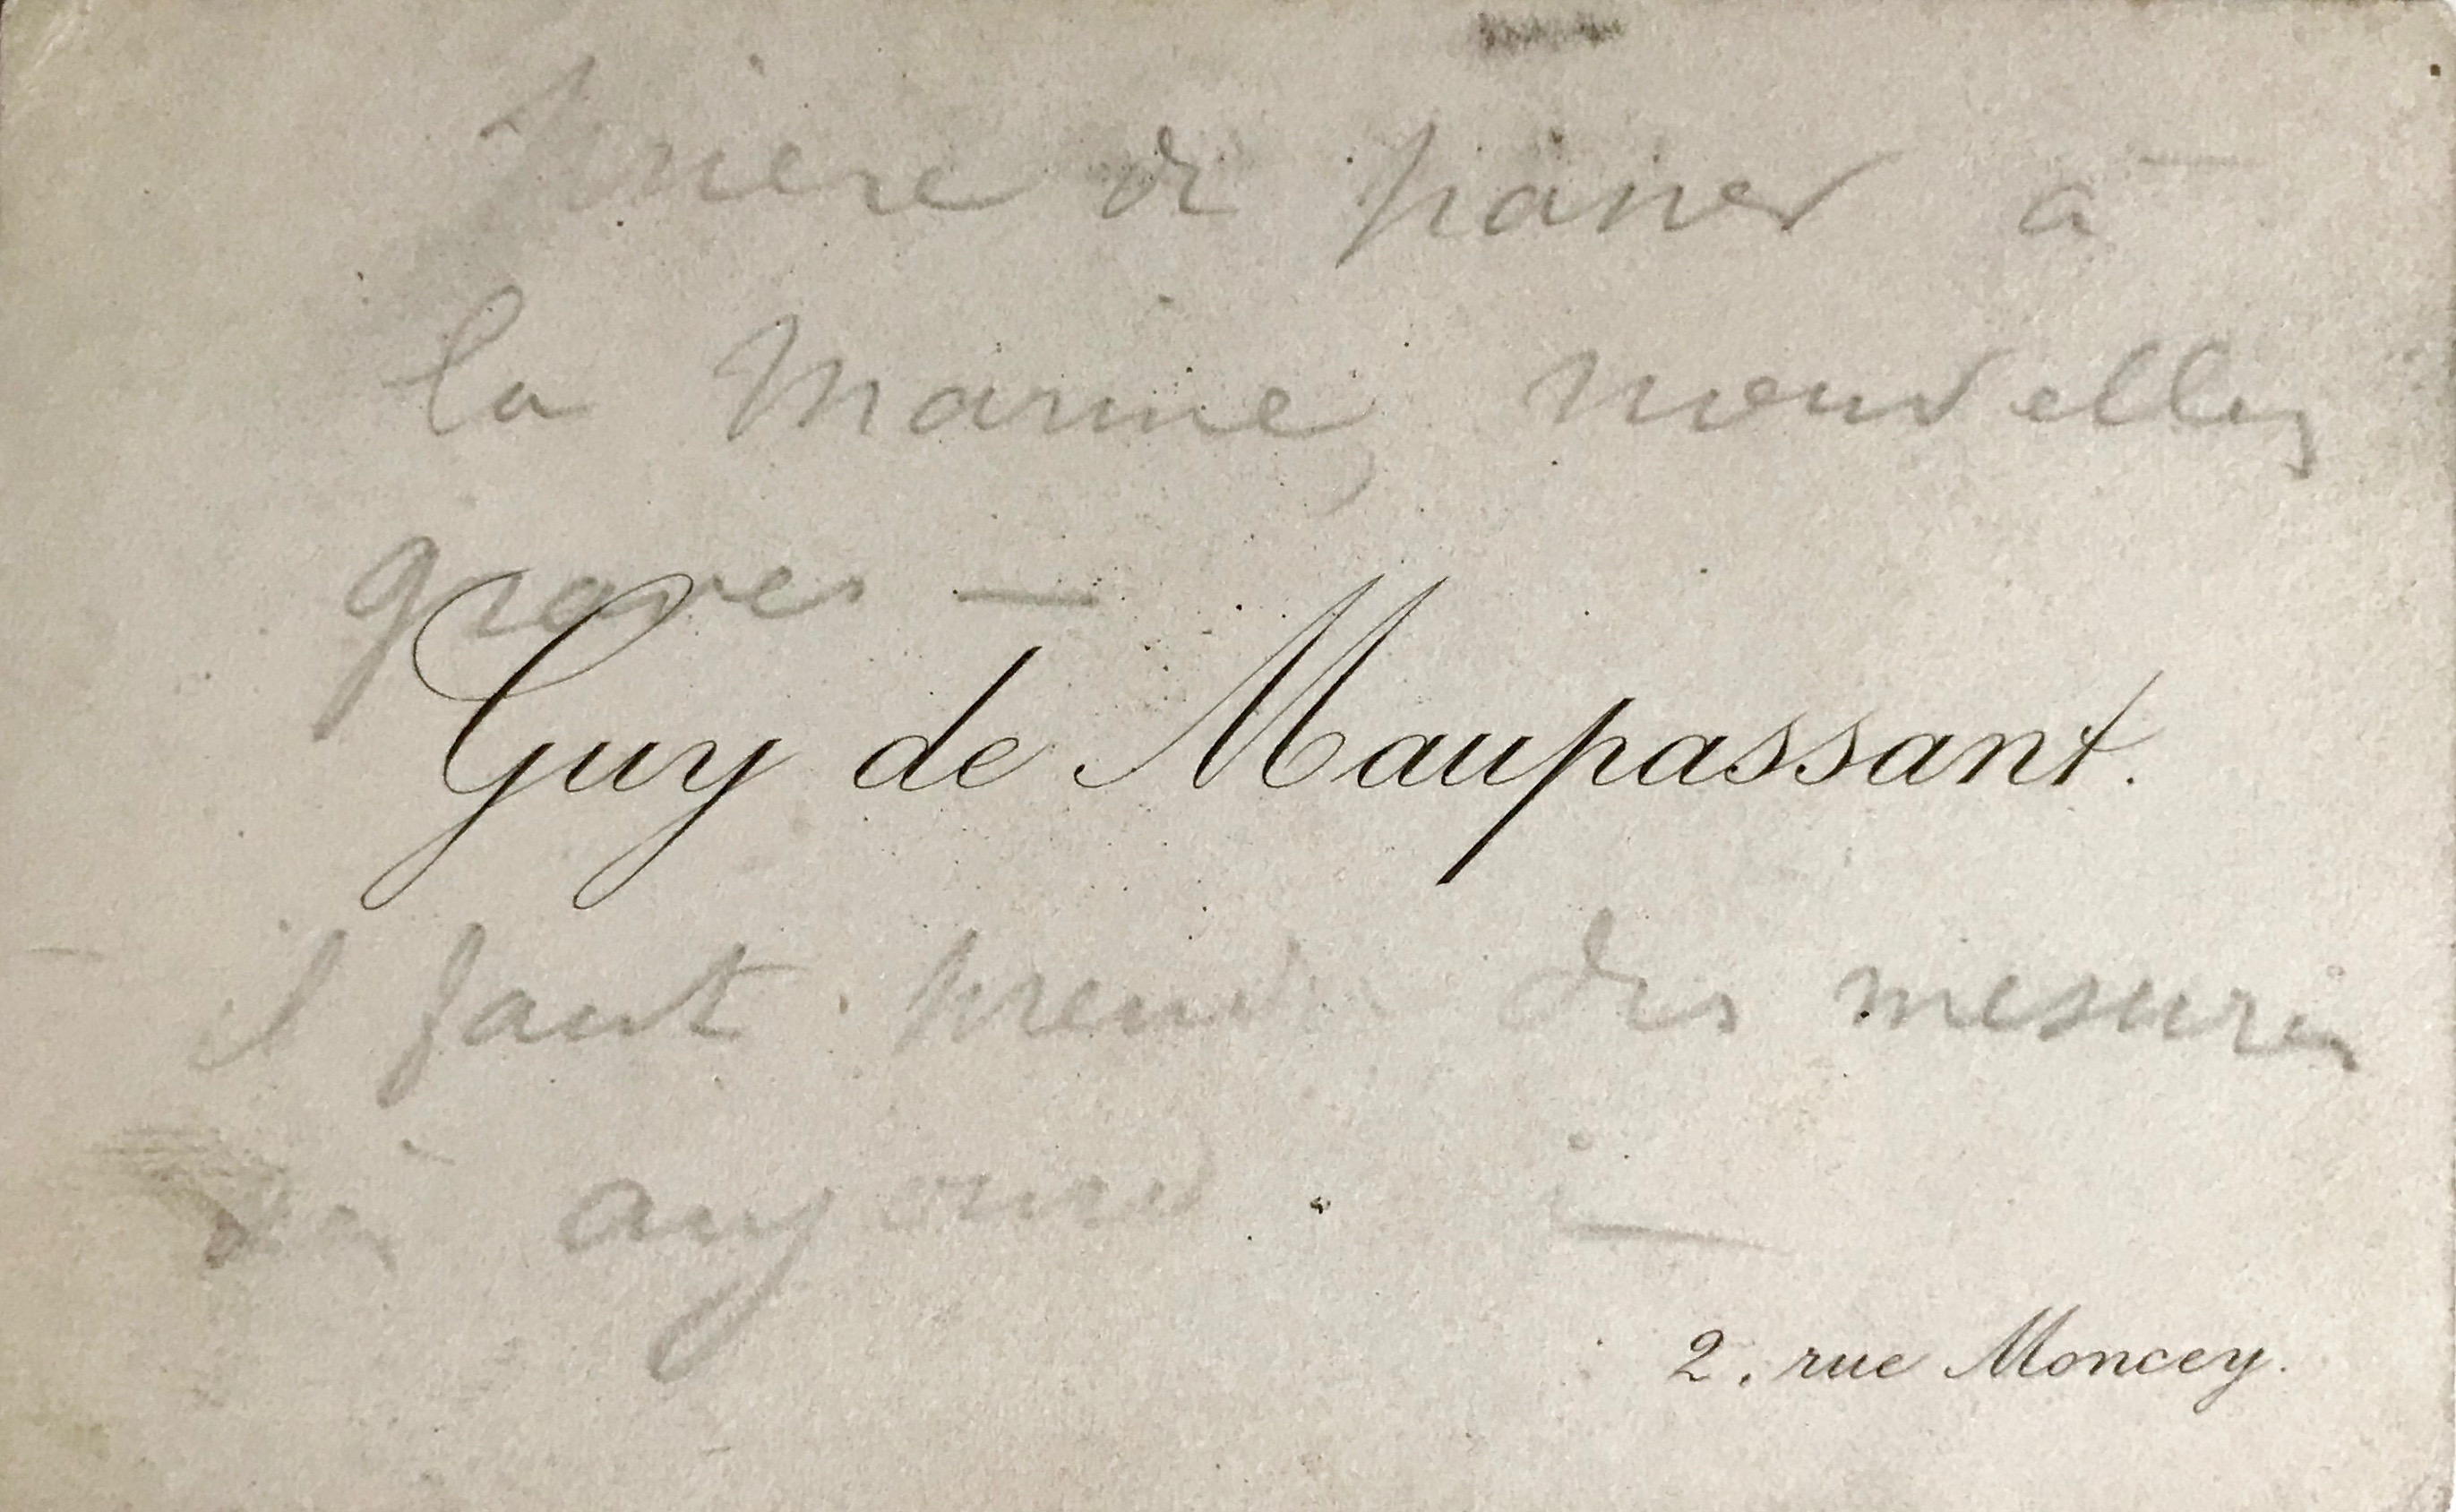 prière de passer à
la Marine, nouvelles
graves —
Guy de Maupassant.
il faut prendre des mesures
dès aujourd'hui
2, rue Moncey.